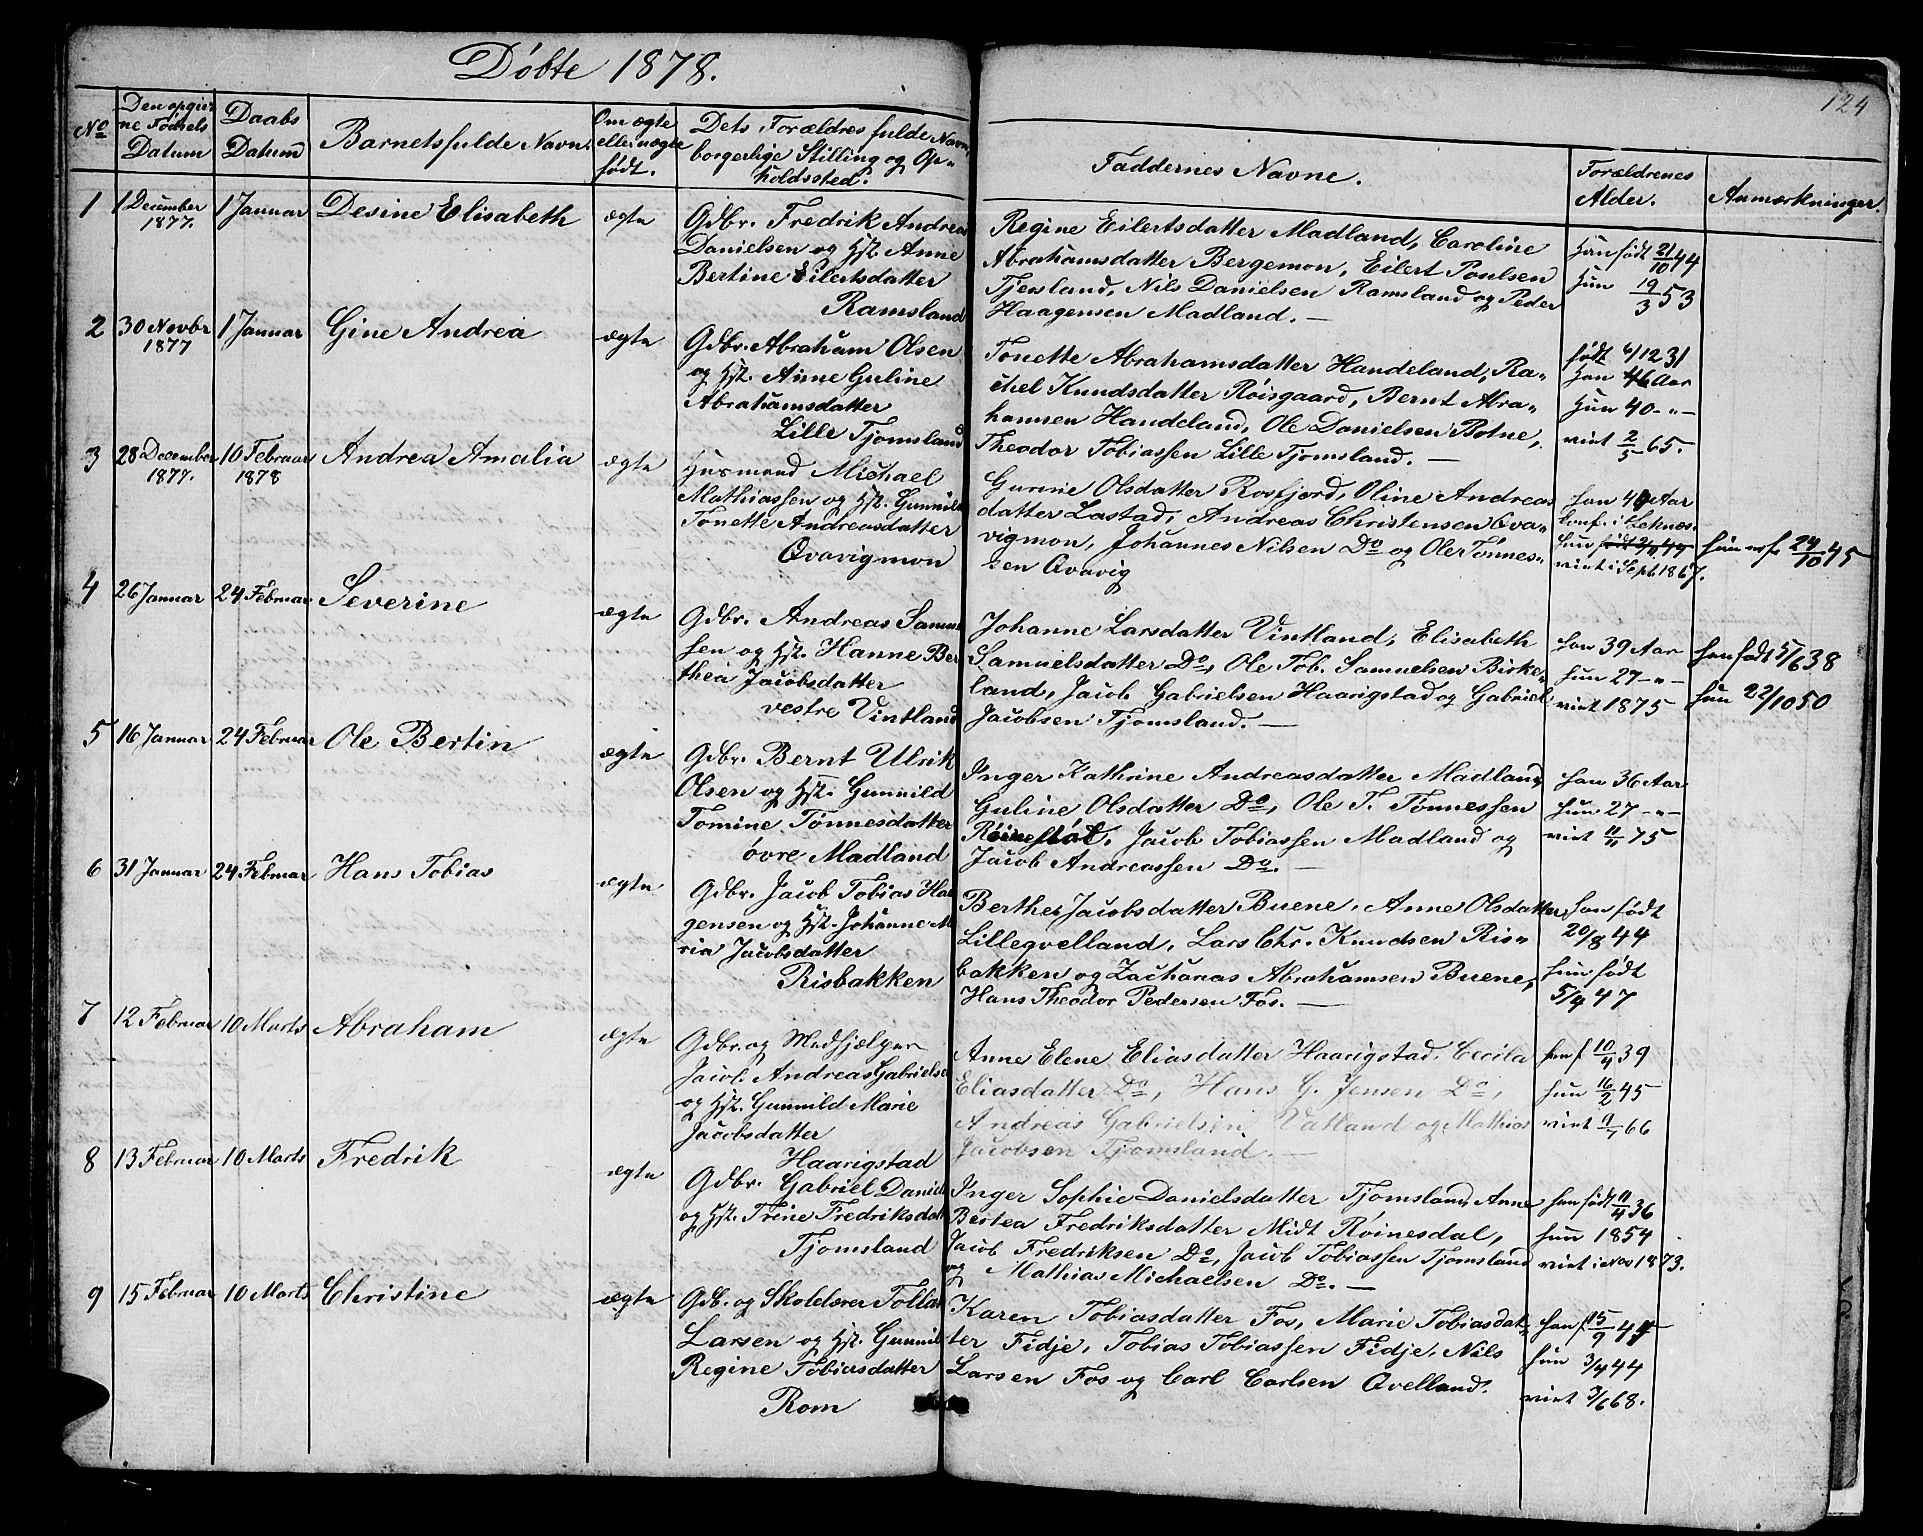 Döbte 1878.
124
No
Den opgiv-
ne Födsels
Datum
Daabs
Datum
Barnets fulde Navn.
Om ægte
eller uægte
födt.
Dets Forældres fulde Navn,
borgerlige Stilling og Op-
holdssted.
Faddernes Navne.
Forældrenes
Alder.
Anmærkninger.
1
1 December
1877.
1 Januar
Desine Elisabeth
ægte
Gdbr. Fredrik Andreas
Danielsen og Hst. Anne
Bertine Eilertsdatter
Ramsland
Regine Eilertsdatter Madland, Caroline
Abrahamsdatter Bergemon, Eilert Poulsen
Tjersland, Nils Danielsen Ramsland og Peder
Haagensen Madland. —
Han födt 21/10 44
Hun 19/3 53
2
30 Novbr
1877
1 Januar
Gine Andrea
ægte
Gdbr. Abraham Olsen
og Hst. Anne Guline
Abrahamsdatter
Lille Tjomsland
Tonette Abrahamsdatter Handeland, Ra-
chel Knudsdatter Röisgaard, Bernt Abra-
hamsen Handeland, Ole Danielsen Botne,
Theodor Tobiassen Lille Tjomsland. —
födt 6/12 31
Han 46 Aar
Hun 40 -"-
viet 2/5 65.
3
28 December
1877.
10 Februar
1878
Andrea Amalia
ægte
Husmand Michael
Mathiassen og Hst. Gunnild
Tonette Andreasdatter
Qvavigmon
Gurine Olsdatter Rosfjord, Oline Andreas
datter Lastad, Andreas Christensen Qva-
vigmon, Johannes Nilsen Do og Ole Tönnes-
sen Qvavig
han 40 Aar
Conf. i Leknes.
Hun födt 2/9 49
viet i Sept. 1867.
hun er f. 24/10 45
4
26 Januar
24 Februar
Severine
ægte
Gdbr. Andreas Samuel
sen og Hst. Hanne Ber
thea Jacobsdatter
vestre Vintland
Johanne Larsdatter Vintland, Elisabeth
Samuelsdatter Do, Ole Tob. Samuelsen Birke-
land, Jacob Gabrielsen Haarigstad og Gabriel
Jacobsen Tjomsland. —
han 39 Aar
hun 27 -"-
viet 1875
han födt 5/6 38
hun 22/10 50
5
16 Januar
24 Februar
Ole Bertin
ægte
Gdbr. Bernt Ulrik
Olsen og Hst. Gunnild
Tomine Tönnesdatter
övre Madland
Inger Kathrine Andreasdatter Madland,
Guline Olsdatter Do, Ole T. Tönnessen
Röinesdal, Jacob Tobiassen Madland og
Jacob Andreassen Do. —
han 36 Aar
hun 27 -"-
viet 11/11 75
6
31 Januar
24 Februar
Hans Tobias
ægte
Gdbr. Jacob Tobias Haa
gensen og Hst. Johanne Ma
ria Jacobsdatter
Risbakken
Berthe Jacobsdatter Buene, Anne Olsdatter
Lilleqvelland, Lars Chr. Knudsen Ris-
bakken og Zacharias Abrahamsen Buene,
Hans Theodor Pedersen Fos. —
han födt
20/8 44
hun födt
5/4 47
7
12 Februar
10 Marts
Abraham
ægte
Gdbr. og Medhjælper
Jacob Andreas Gabrielse
og Hst. Gunnild Marie
Jacobsdatter
Haarigstad
Anne Elene Eliasdatter Haarigstad, Cecilia
Eliasdatter Do, Hans G. Jensen Do,
Andreas Gabrielsen Vatland og Mathias
Jacobsen Tjomsland. —
han f. 10/4 39
hun 16/2 45
viet 11/7 66
8
13 Februar
10 Marts
Fredrik
ægte
Gdbr. Gabriel Daniel
og Hst. Trine Fredriksdatt
Tjomsland
Inger Sophie Danielsdatter Tjomsland, Anne
Bertea Fredriksdatter Midt Röinesdal,
Jacob Fredriksen Do, Jacob Tobiassen Tjomsland
og Mathias Michaelsen Do. —
han födt 11/4 36
hun 1854
viet i Nov 1873.
9
15 Februar
10 Marts
Christine
ægte
Gdb. og Skolelærer Tollak
Larsen og Hst. Gunnild
Regine Tobiasdatter
Rom
Karen Tobiasdatter Fos, Marie Tobiasdat-
ter Fidje, Tobias Tobiassen Fidje, Nils
Larsen Fos og Carl Carlsen Qvelland.
han f. 15/9 44
hun 3/4 44
viet 3/6 68.